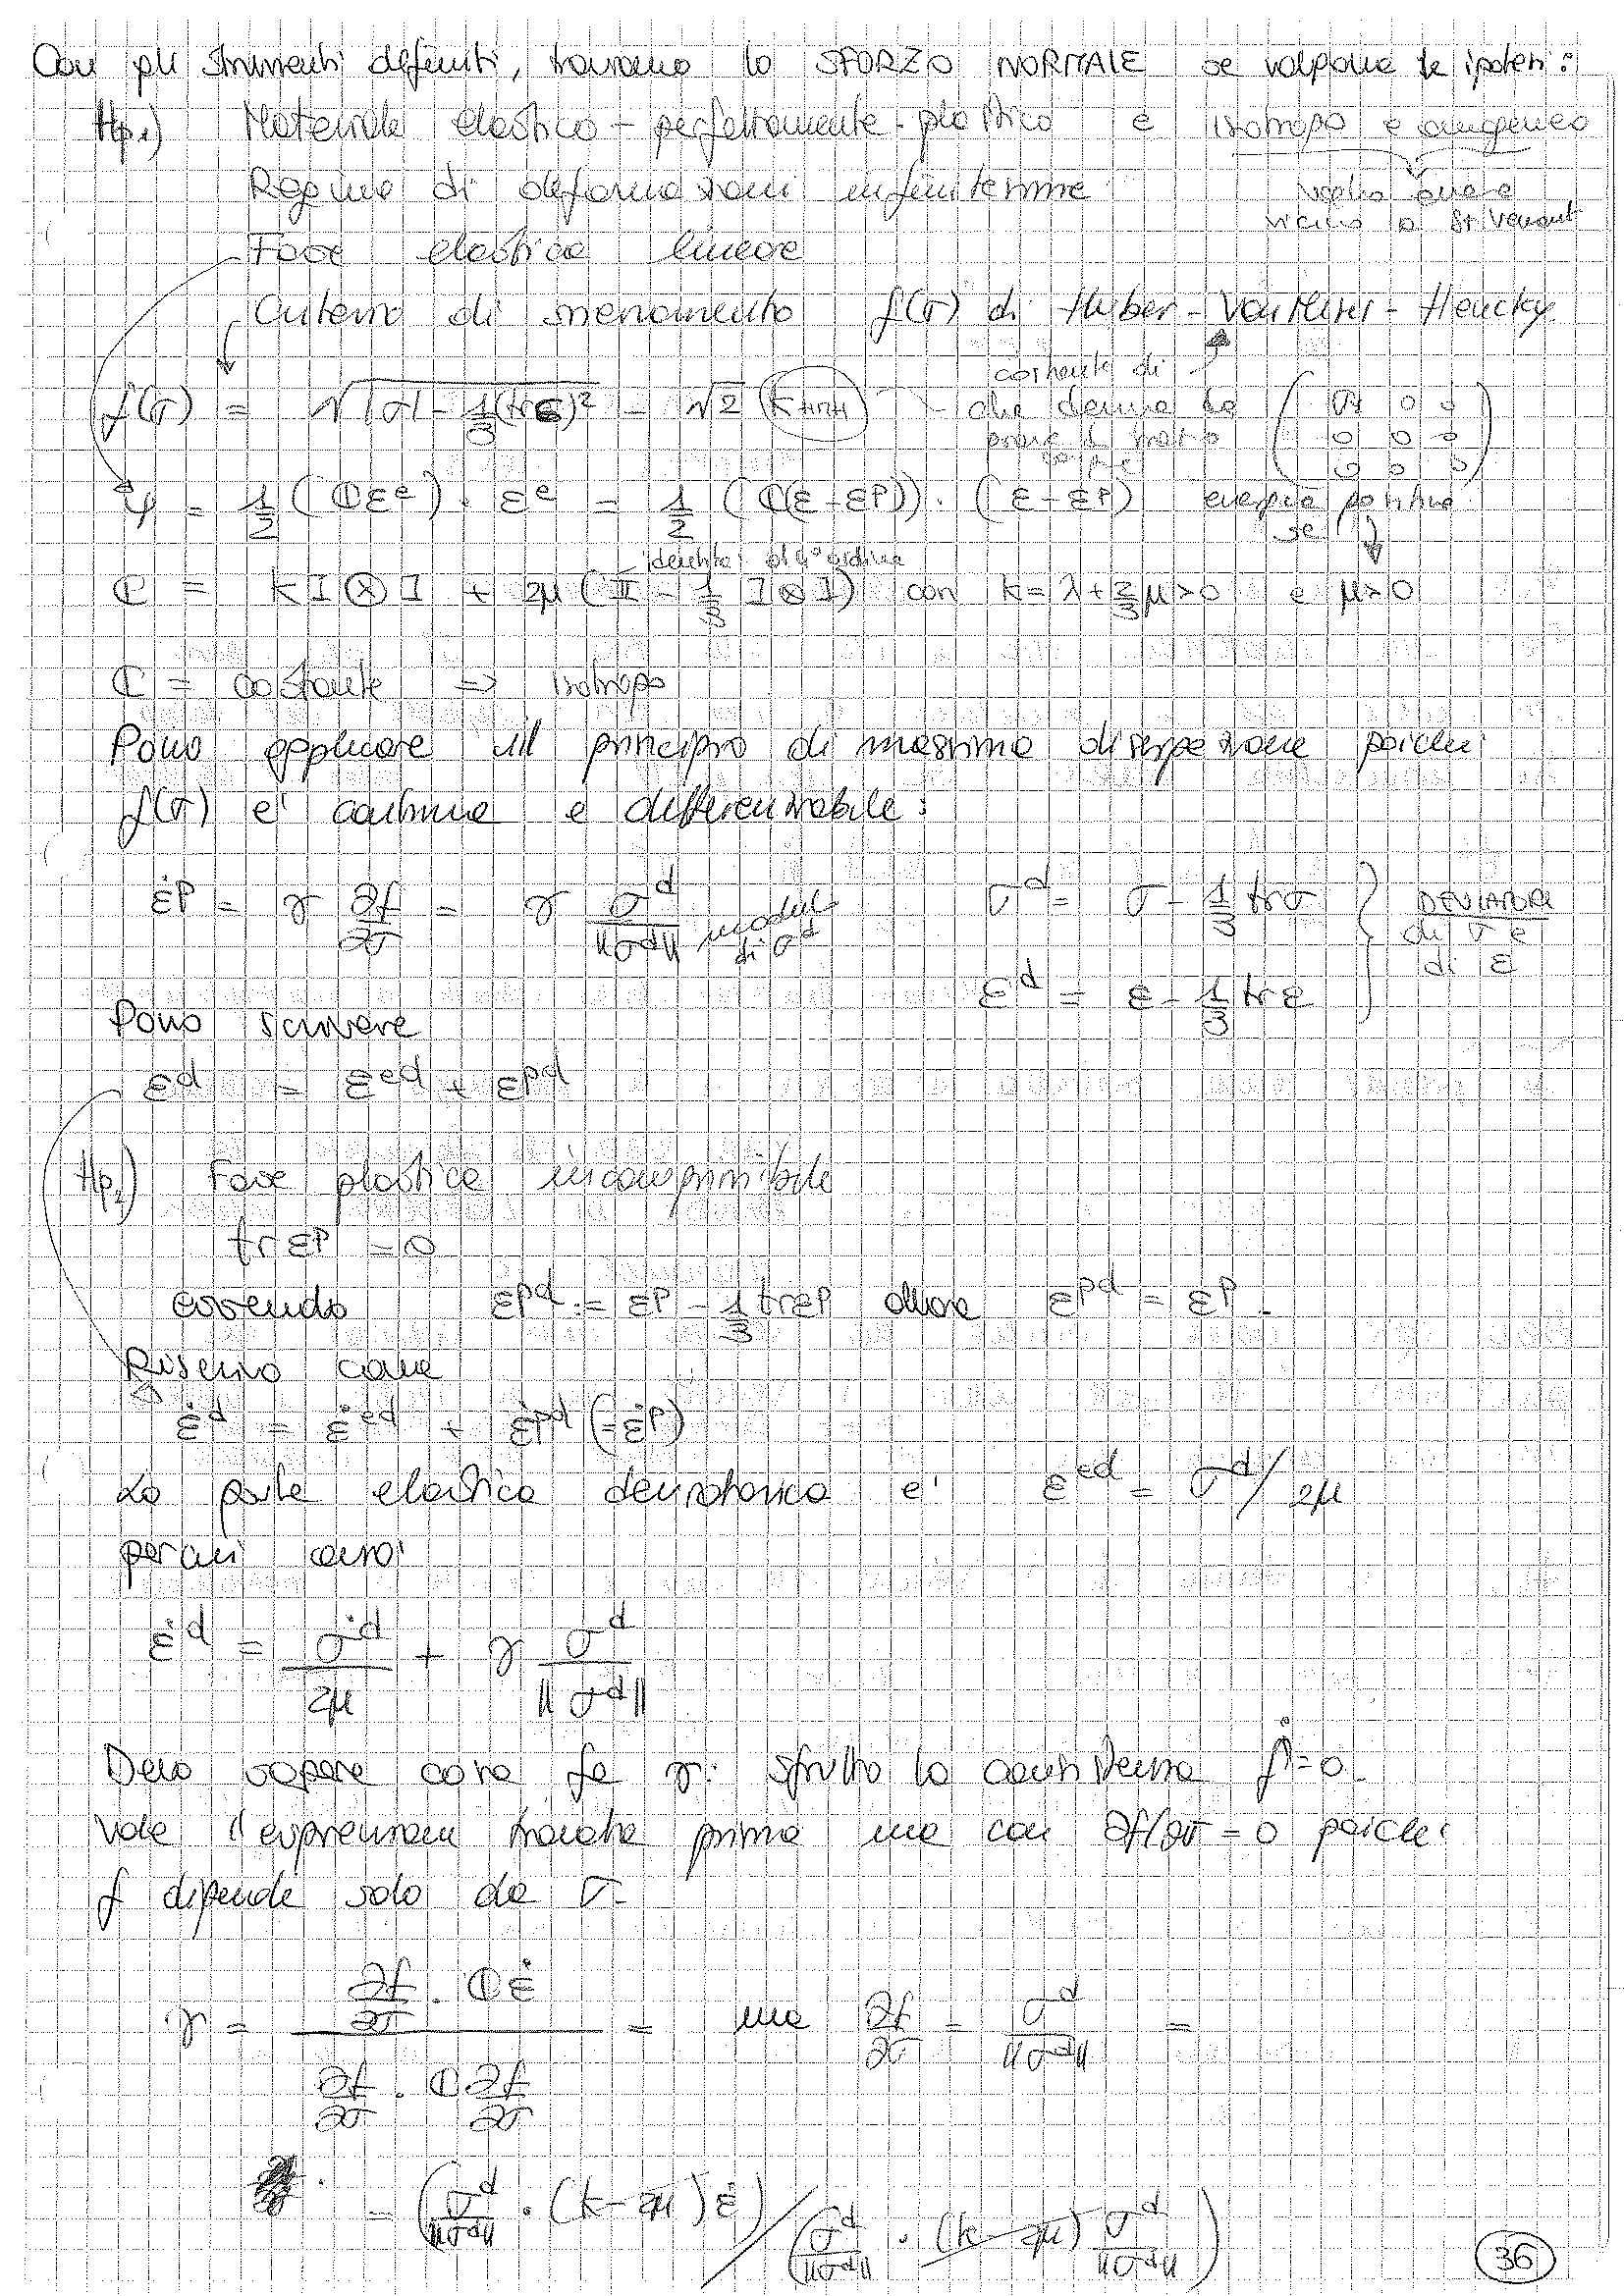 Con gli strumenti definiti, troviamo lo SFORZO NORMALE se valgono le ipotesi:
Hp1) Materiale elastico - perfettamente - plastico e isotropo e omogeneo
Regime di deformazioni infinitesime voglio essere
vicino a St Venant
Fase elastica lineare
Criterio di snervamento f(σ) di Huber - Von Mises - Hencky
f(σ) = √|σ|-1/3(trσ)² - √2 KHMH - costante di
che deriva da
prove di trattiva
(σ 0 0
0 0 0
0 0 0)
ψ = 1/2 (ℂεᵉ) · εᵉ = 1/2 (ℂ(ε-εᵖ)) · (ε-εᵖ) energia positiva
se
identità di 4° ordine
ℂ = kI⊗I + 2μ(𝕀 - 1/3 I⊗I) con k=λ+2/3μ>0 e μ>0
ℂ = costante ⇒ isotropo
Posso applicare il principio di massima dissipazione poiché
f(σ) è continua e differenziabile:
ε̇ᵖ = γ ∂f/∂σ = γ σᵈ/‖σᵈ‖ modulo di σᵈ σᵈ = σ - 1/3 trσ } DEVIATORI
di σ e
di ε
εᵈ = ε - 1/3 trε
Posso scrivere
εᵈ = εᵉᵈ + εᵖᵈ
Hp2) Fase plastica incomprimibile
trεᵖ = 0
essendo εᵖᵈ := εᵖ - 1/3 trεᵖ allora εᵖᵈ = εᵖ.
Riscrivo come
ε̇ᵈ = ε̇ᵉᵈ + ε̇ᵖᵈ(=ε̇ᵖ)
La parte elastica deviatorica è εᵉᵈ = σᵈ/2μ
per cui avrò:
ε̇ᵈ = σ̇ᵈ/2μ + γ σᵈ/‖σᵈ‖
Devo sapere cosa fa γ: sfrutto la consistenza ḟ=0.
Vale l'espressione trovata prima ma con ∂f/∂α = 0 poiché
f dipende solo da σ.
γ = (∂f/∂σ · ℂε̇) / (∂f/∂σ · ℂ ∂f/∂σ) = ma ∂f/∂σ = σᵈ/‖σᵈ‖ =
= (σᵈ/‖σᵈ‖ · (k-2μ)ε̇) / (σᵈ/‖σᵈ‖ · (k-2μ) σᵈ/‖σᵈ‖)
36